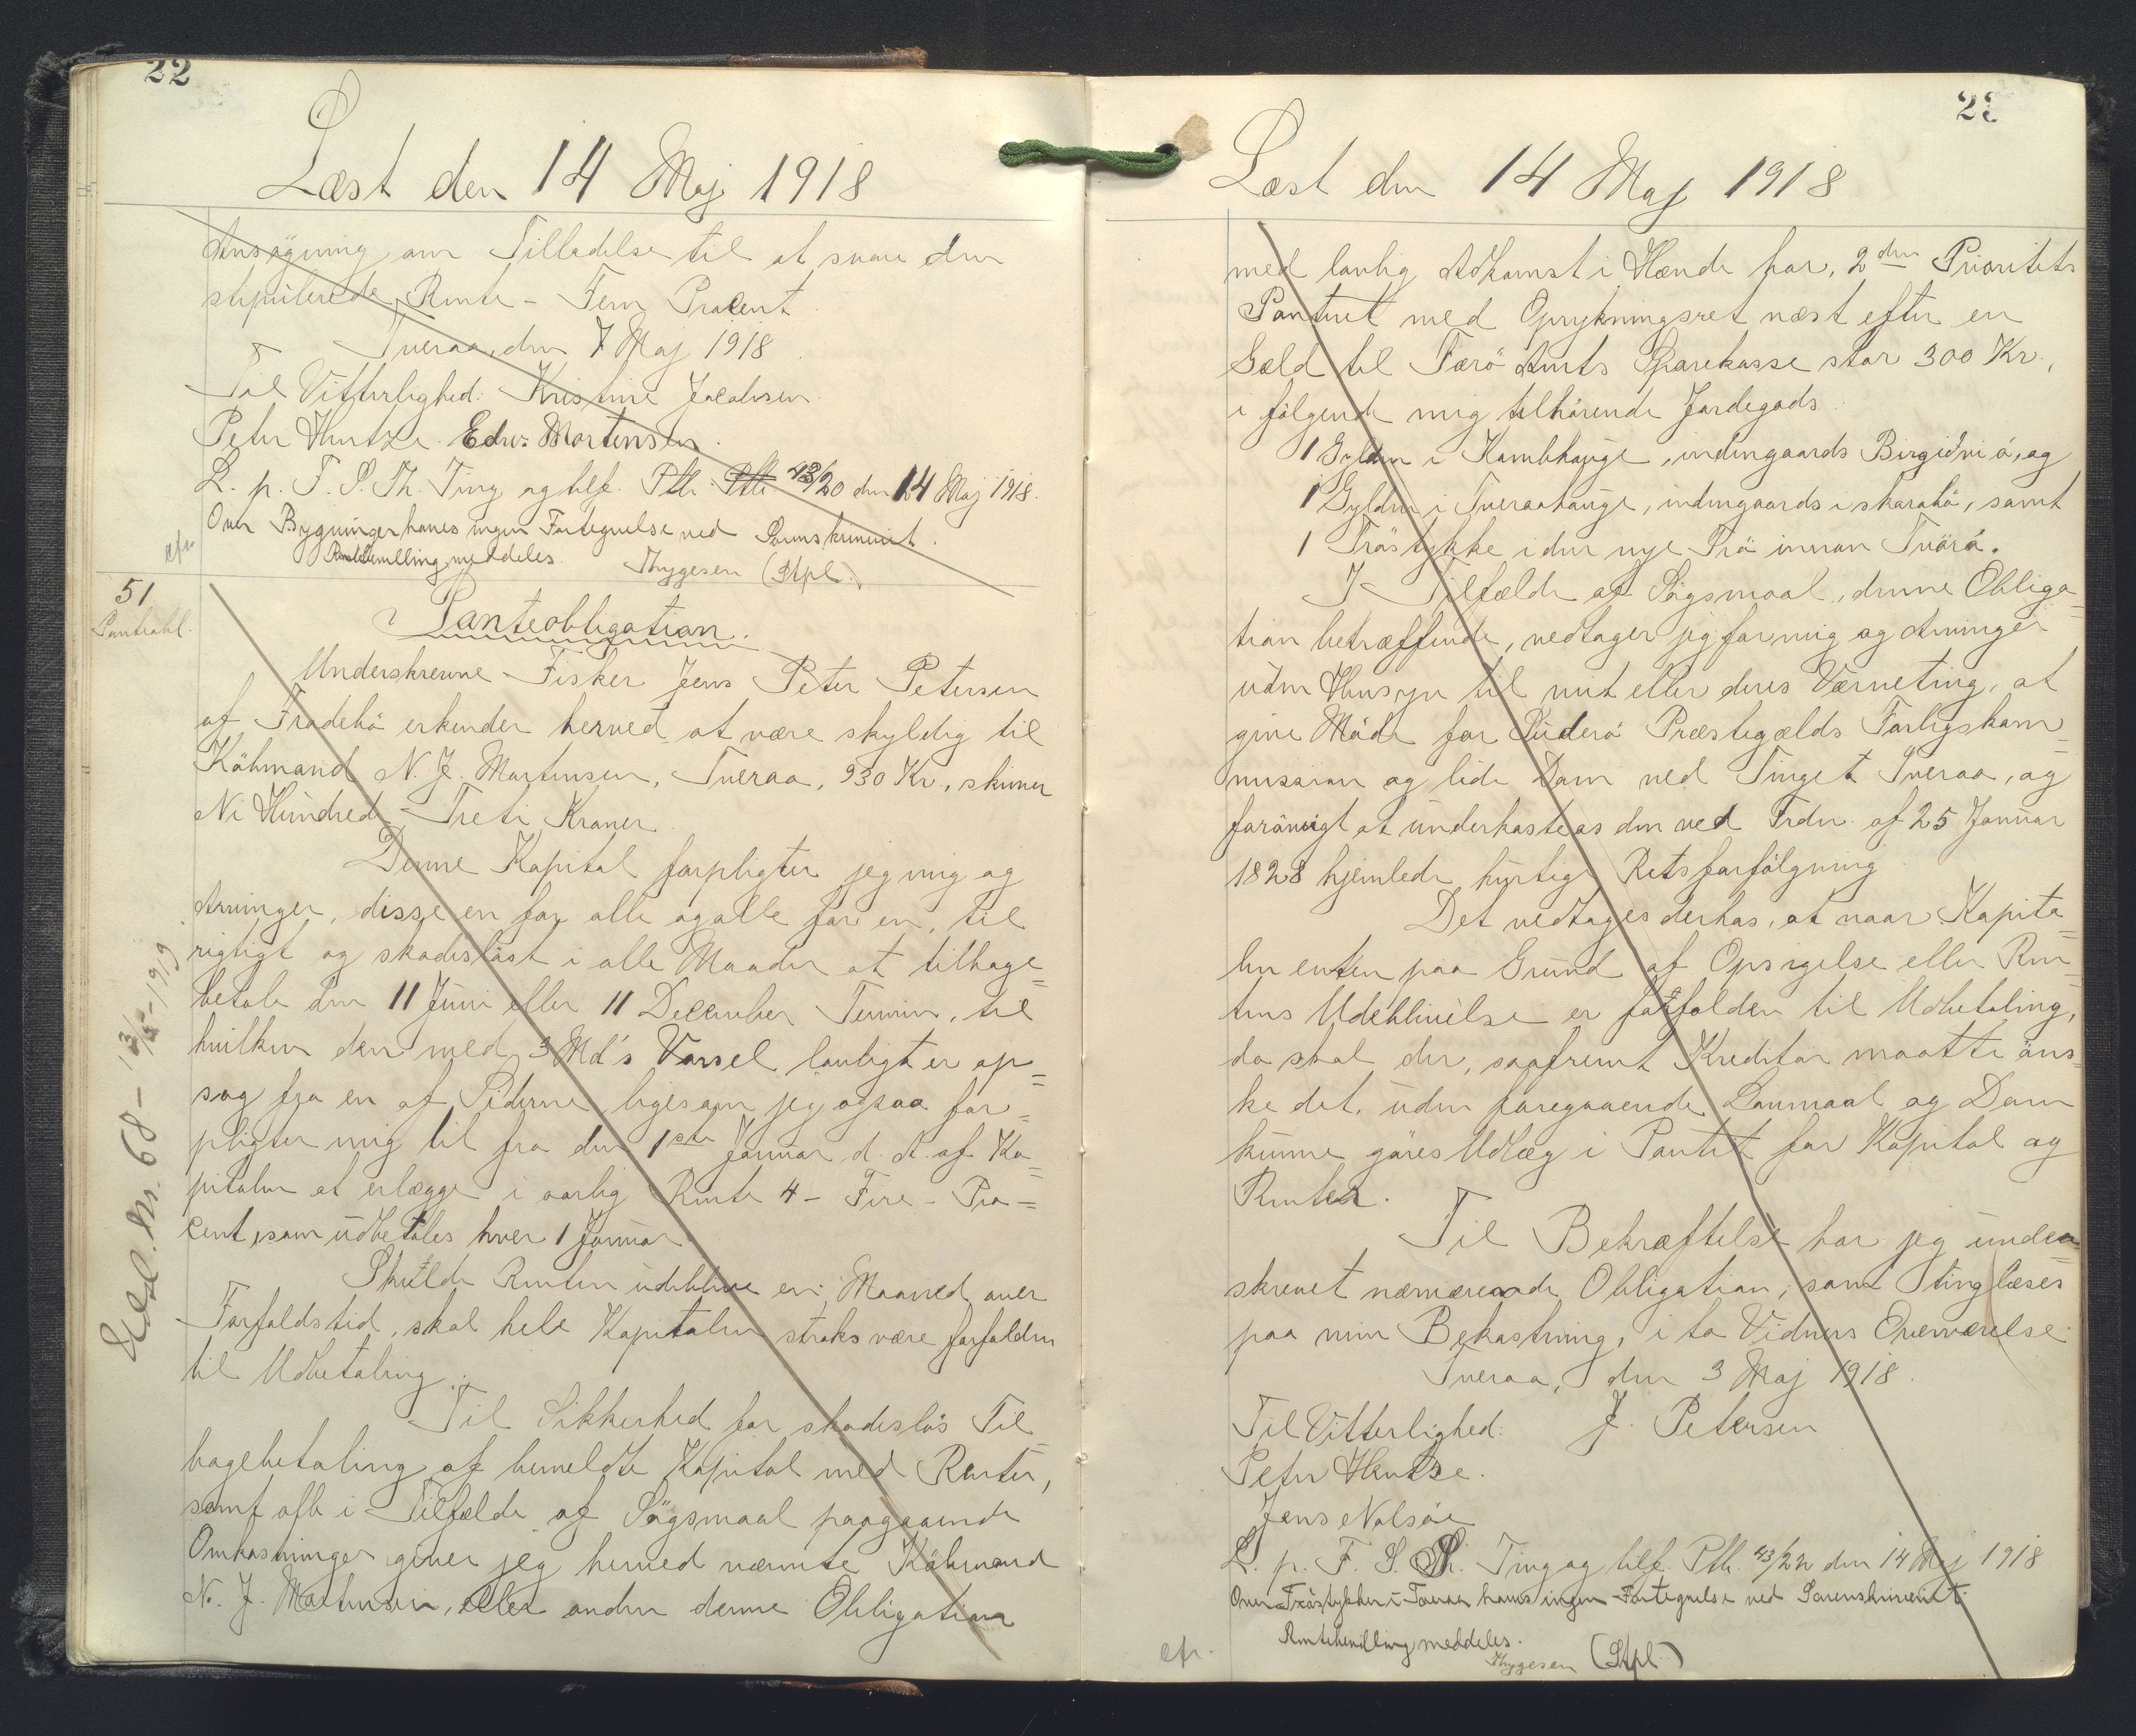 22
Læst den 14 Maj 1918
Ansøgning om Tilladelse til at svare den
stipulerede Rente - Fem Procent
Tveraa, den 7 Maj 1918
Til Vitterlighed: Kristine Jacobsen
Peter Hentze. Edw. Mortensen.
L. p. F. S. Th. Ting og tilf. Ptb. Ptb. 43/20 den 14 Maj 1918.
Over Bygninger haves ingen Fortegnelse ved Sorenskriveriet.
cfr.
Rentebevilling meddeles. Thygesen (Stpl.)
51
Panteobl.
Panteobligation.
Underskrevne Fisker Jens Peter Petersen
af Frodebö erkender herved at være skyldig til
Köbmand N. J. Mortensen, Tveraa, 930 Kr., skriver
Ni Hundred Treti Kroner
Denne Kapital forpligter jeg mig og
Arvinger, disse en for alle og alle for en, til
rigtigt og skadeslöst i alle Maader at tilbage=
betale den 11 Juni eller 11 December Termin, til
hvilken den med 3 Md's Varsel lovligt er op=
sag fra en af Siderne ligesom jeg ogsaa for=
pligter mig til fra den 1ste Januar d. A. af Ka=
pitalen at erlægge i aarlig Rente 4 - Fire - Pro=
cent, som udbetales hver 1 Januar
Skulde Renten udeblive en Maaned over
Forfaldstid, skal hele Kapitalen straks være forfalden
til Udbetaling.
Til Sikkerhed for skadeslös Til
bagebetaling af bemeldte Kapital med Renter,
samt alle i Tilfælde af Sögsmaal paagaaende
Omkostninger giver jeg herved nævnte Köbmand
N. J. Mortensen, eller anden denne Obligation
Udsl. Nr. 68 - 13/5 - 1919
23
Læst den 14 Maj 1918
med lovlig Adkomst i Hænde har, 2den Prioritets
Panteret med Oprykningsret næst efter en
Gæld til Færö Amts Sparekasse stor 300 Kr.,
i fölgende mig tilhörende Jordegods:
1 Gylden i Kambhauge, indengaards Birgidni á, og
1 Gylden i Tveraahauge, indengaards i skarabö, samt
1 Tröstykke i den nye Trö innan Tvörá.
I Tilfælde af Sögsmaal, denne Obliga=
tion betræffende, vedtager jeg for mig og Arvinger
uden Hensyn til mit eller deres Værneting, at
give Möde for Suderö Præstegælds Forligskom=
mission og lide Dom ved Tinget Tveraa, og
forövrigt at underkaste os den ved Frdn. af 25 Januar
1828 hjemlede hurtige Retsforfölgning
Det vedtages derhos, at naar Kapita=
len enten paa Grund af Opsigelse eller Ren=
tens Udeblivelse er forfalden til Udbetaling,
da skal der, saafremt Kreditor maatte öns=
ke det, uden foregaaende Lovmaal og Dom
kunne göres Udlæg i Pantet for Kapital og
Renter.
Til Bekræftelse har jeg under
skrevet nærværende Obligation, som tinglæses
paa min Bekostning, i to Vidners Overværelse
Tveraa, den 3 Maj 1918.
Til Vitterlighed: J. Petersen
Peter Hentze.
Jens Nolsöe
L. p. F. S. Th. Ting og tilf. Ptb. 43/22 den 14 Maj 1918
Over Tröstykker i Tveraa haves ingen Fortegnelse ved Sorenskriveriet.
Rentebevilling meddeles.
cfr.
Thygesen (Stpl.)